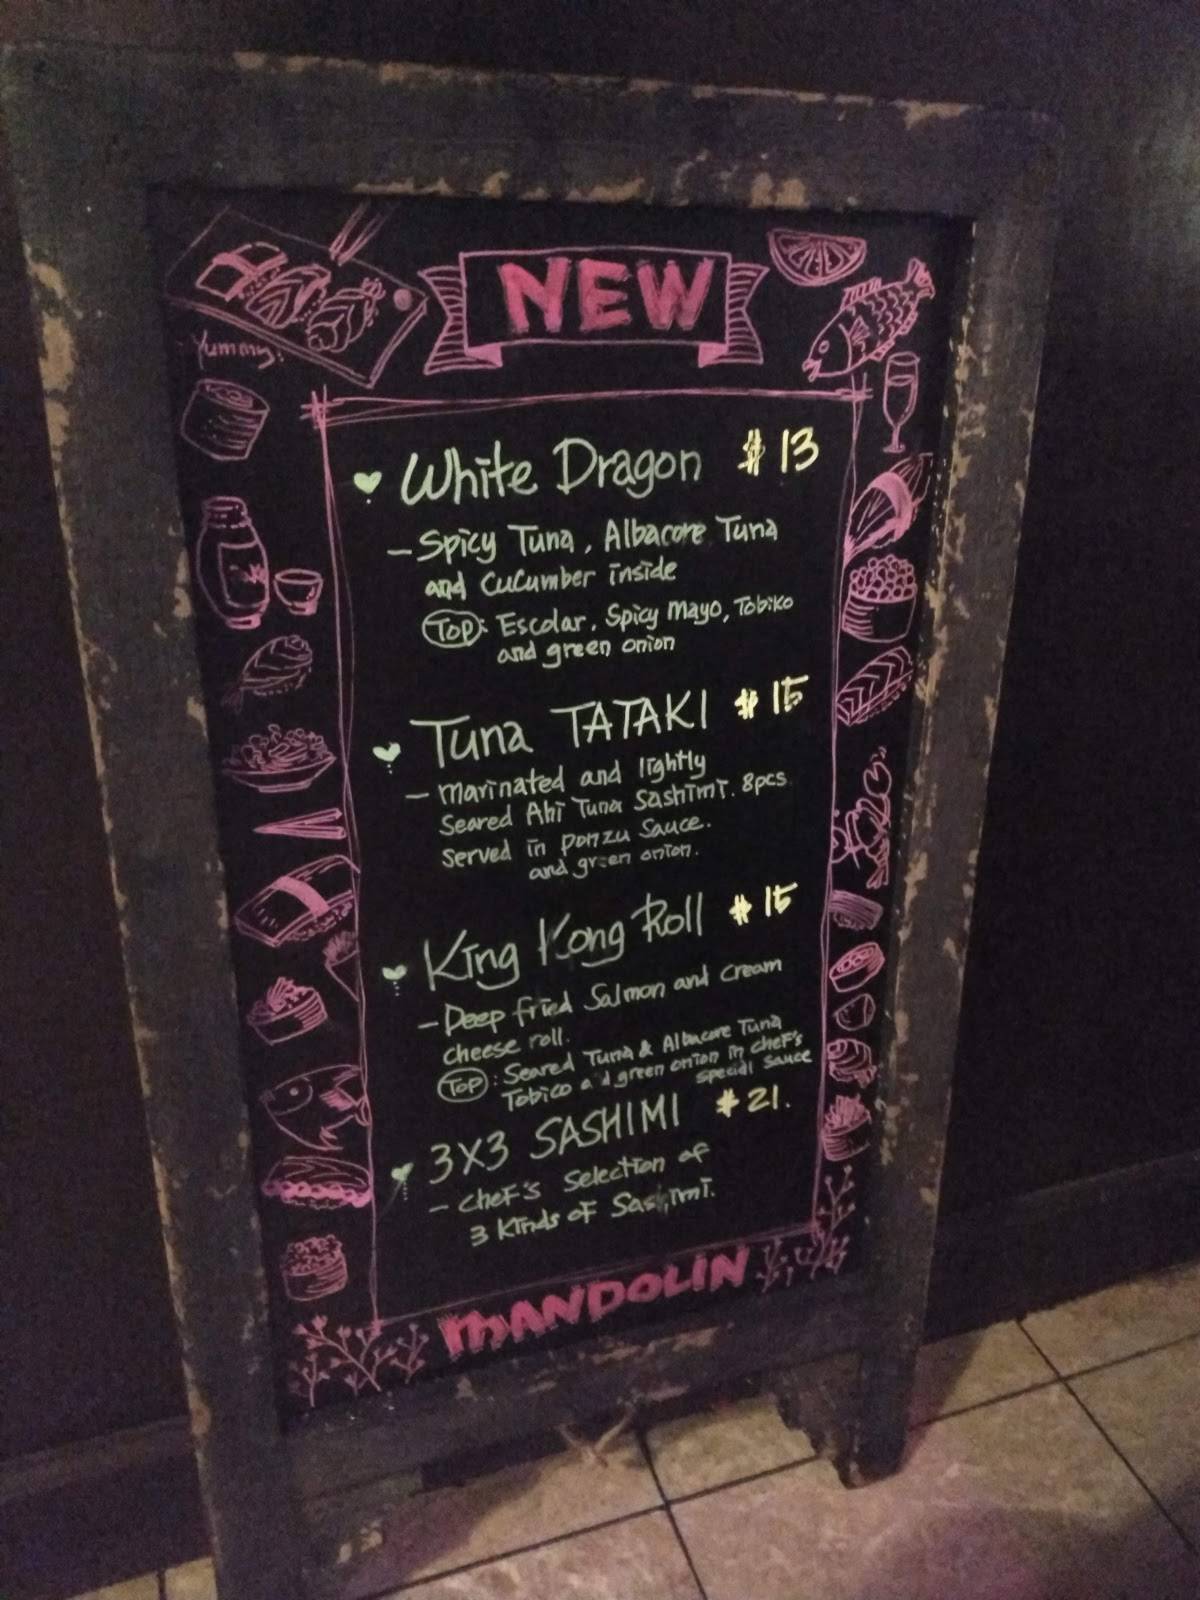 NEW
Yummy!
White Dragon $13
- Spicy Tuna, Albacore Tuna
and Cucumber inside
Top: Escolar, Spicy Mayo, Tobiko
and green onion
Tuna TATAKI $15
- Marinated and lightly
Seared Ahi Tuna Sashimi. 8pcs
Served in Ponzu Sauce.
and green onion.
King Kong Roll $15
- Deep fried Salmon and cream
cheese roll.
Top: Seared Tuna & Albacore Tuna
Tobico and green onion in chef's
special sauce
3X3 SASHIMI $21.
- chef's selection of
3 kinds of Sashimi.
MANDOLIN